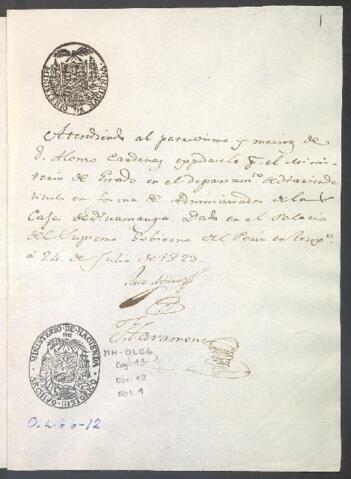 1
MINISTERIO DE HACIENDA
Atendiendo al patriotismo y meritos de
D. Alonso Cardenas expidasele pr. el Minis-
terio de Estado en el departamto. de Hacienda
titulo en forma de Administrador de la
Casa de Huamanga. Dado en el Palacio
del Supremo Gobierno del Perú en
á 24. de Julio de 1823.
MINISTERIO-DE-HACIENDA
ARCHIVO-HISTORICO
MH-OL66
Caj. 13
Doc. 12
Fol. 1
O.L. 66-12